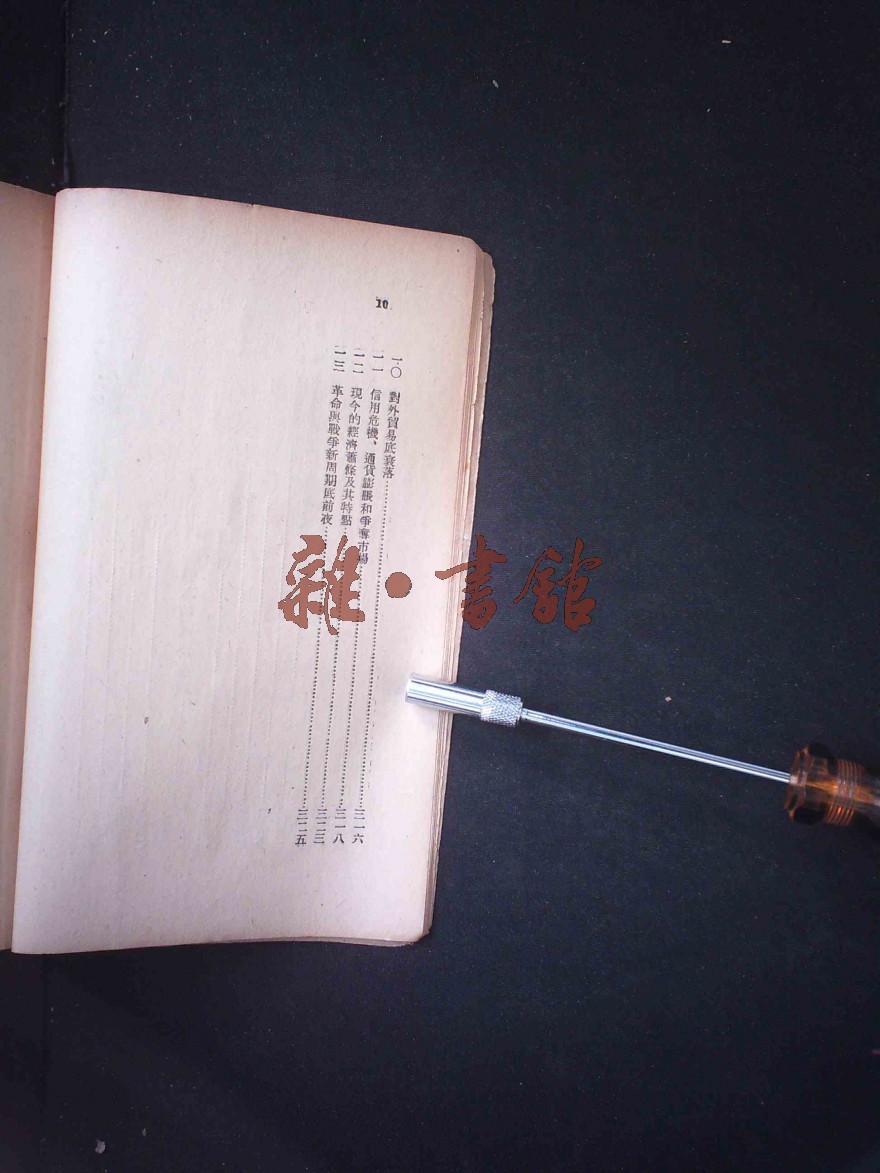 10
一〇 對外貿易底衰落……三一六
一一 信用危機、通貨膨脹和爭奪市場……三一八
一二 現今的經濟蕭條及其特點……三二三
一三 革命與戰爭新周期底前夜……三二五
雜·書館